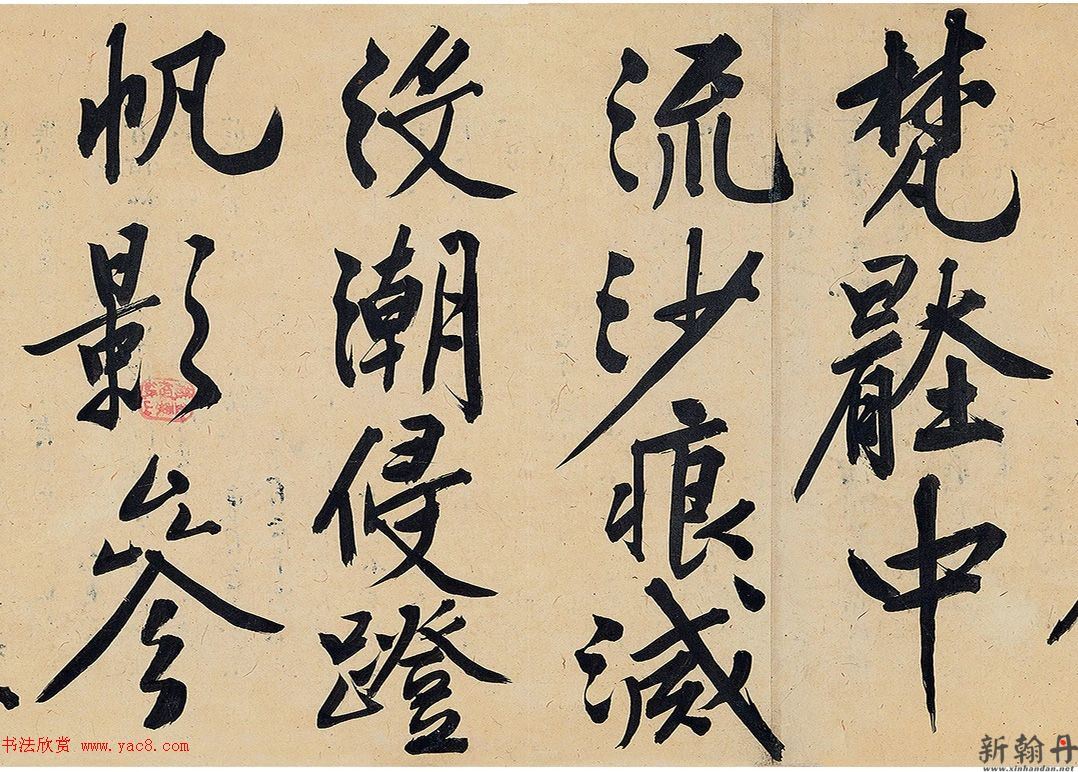 梵壑中
流沙痕滅
没潮侵蹬
帆影參
书法欣赏 www.yac8.com
新翰丹
www.xinhandan.net